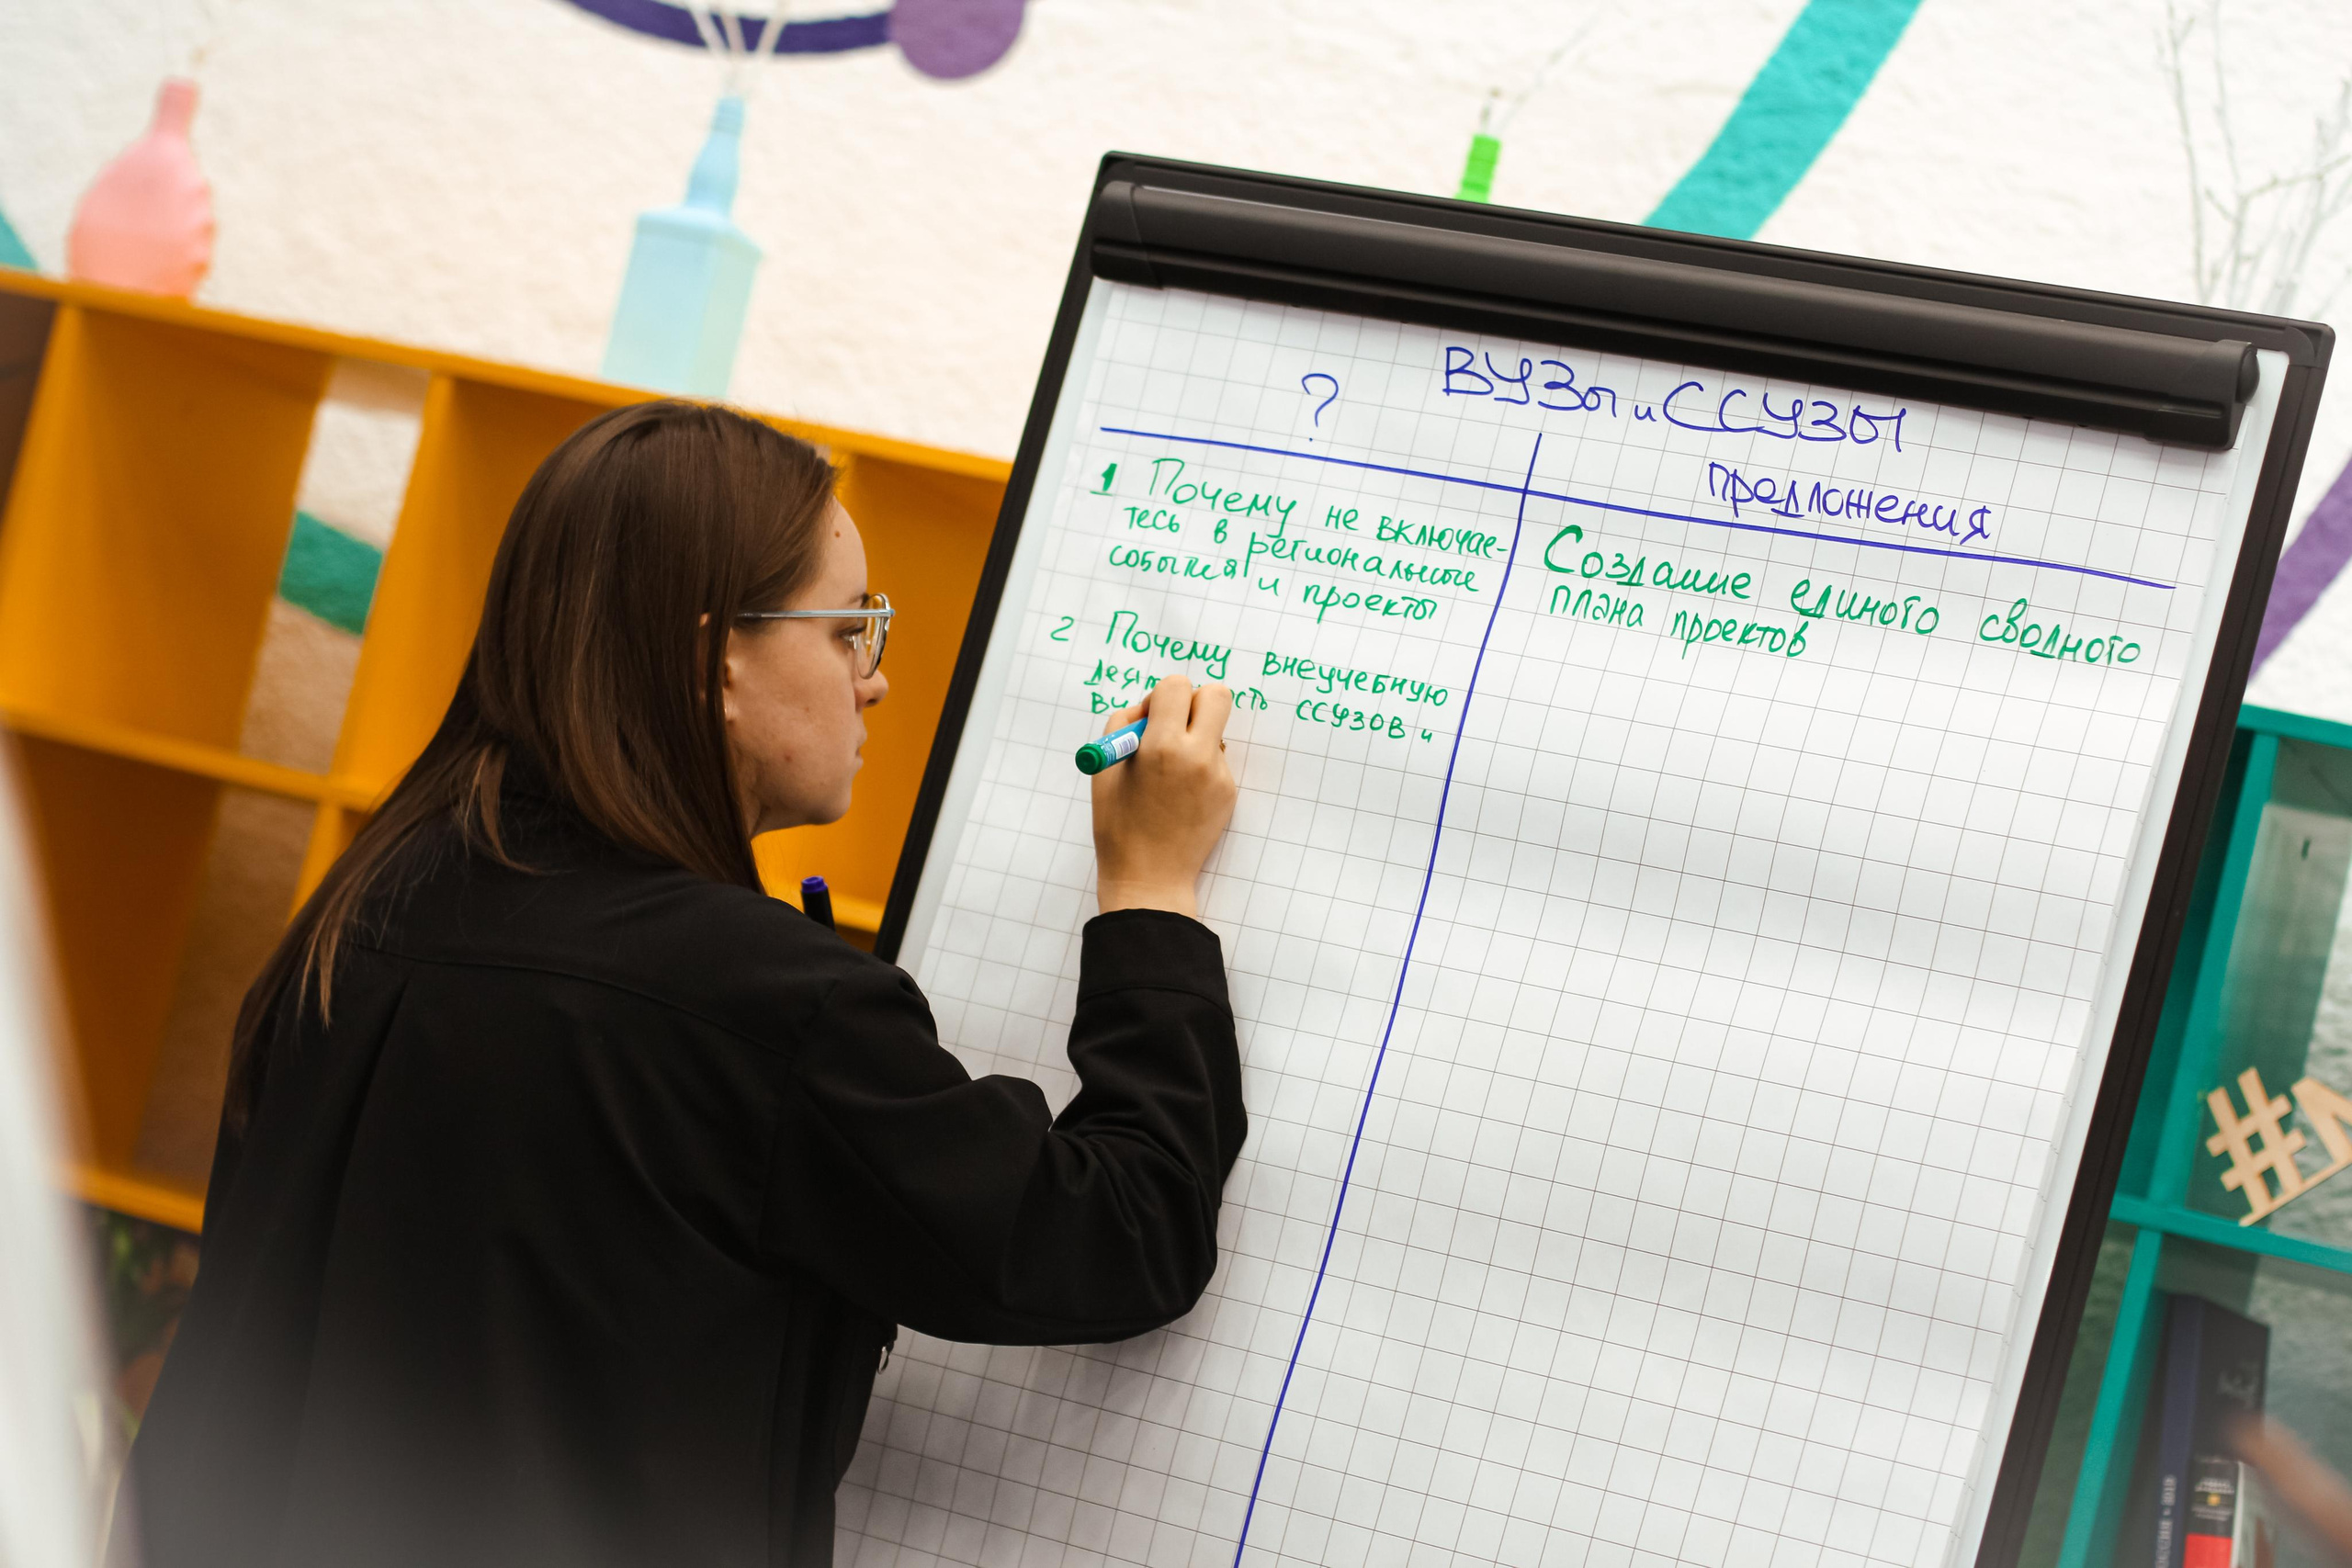 ВУЗы и ССУЗЫ
?
предложения
1 Почему не включае-
тесь в региональные
события и проекты
2 Почему внеучебную
ССУЗОВ и
Создание единого сводного
плана проектов
#